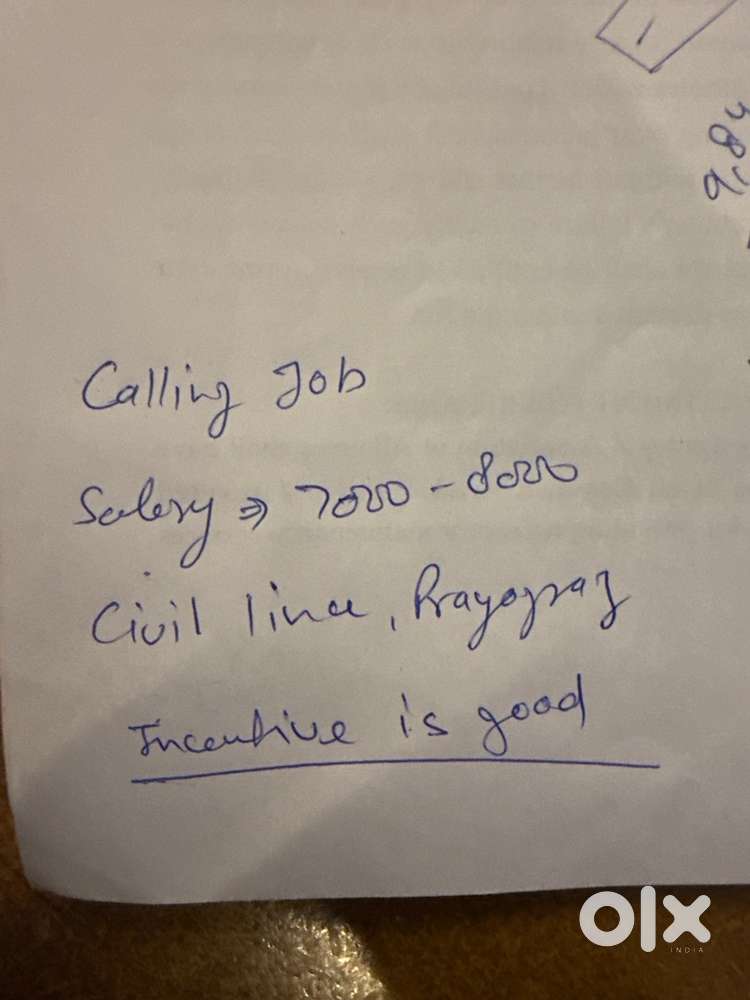 1
9,84
Calling Job
Salary ⇒ 7000 - 8000
Civil line, Prayagraj
Incentive is good
olx
INDIA